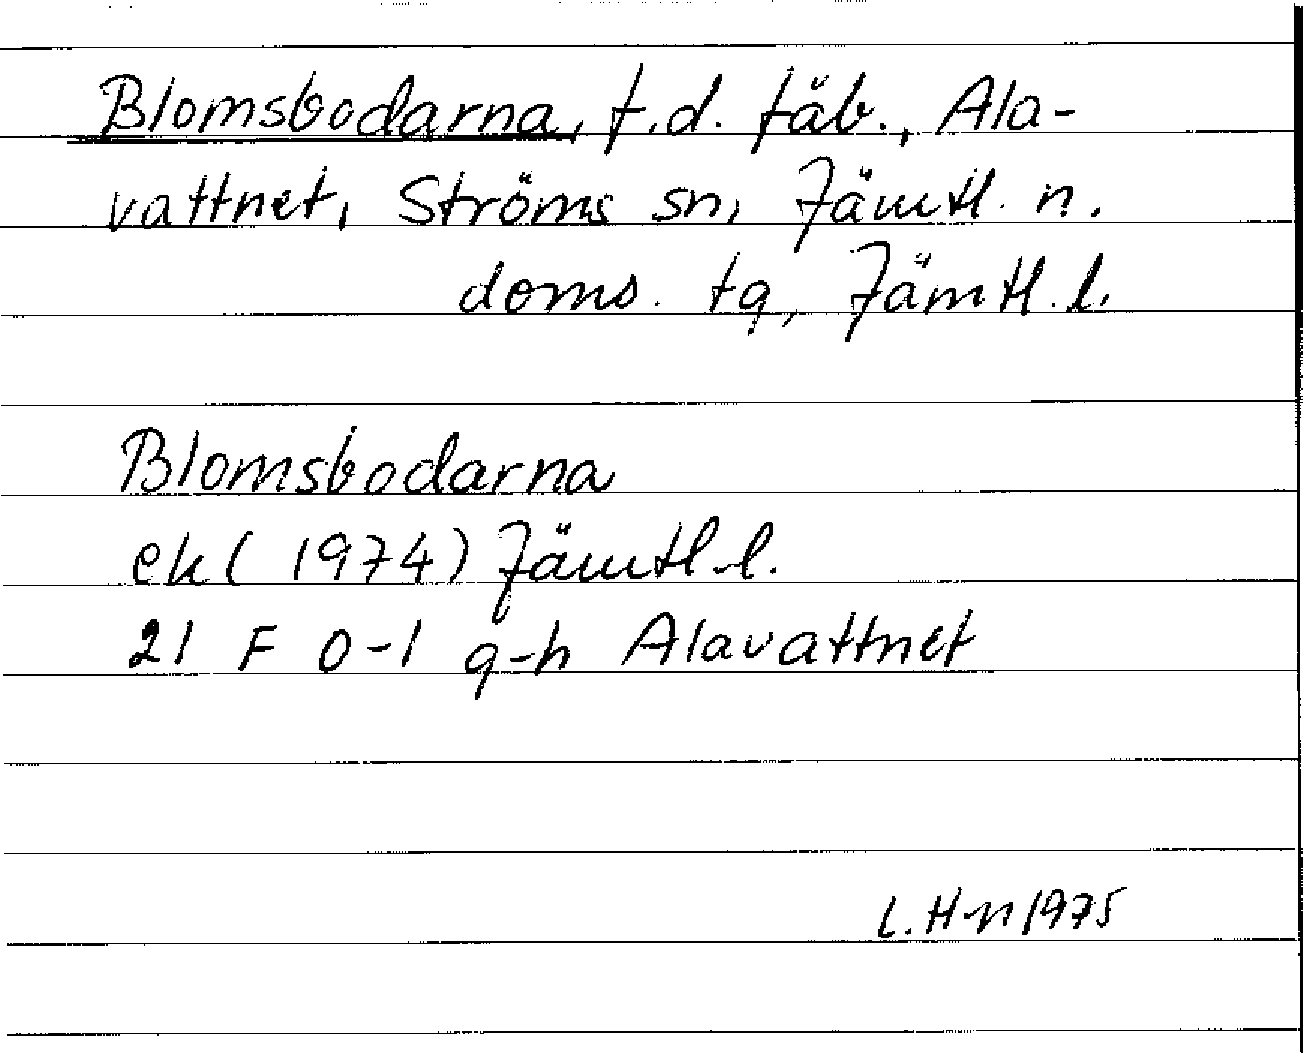 Blomsbodarna, f.d. fäb., Ala-
vattnet, Ströms sn, Jämtl. n.
doms. tg, Jämtl. l.
Blomsbodarna
ek (1974) Jämtl. l.
21 F 0-1 g-h Alavattnet
L. H-n 1975